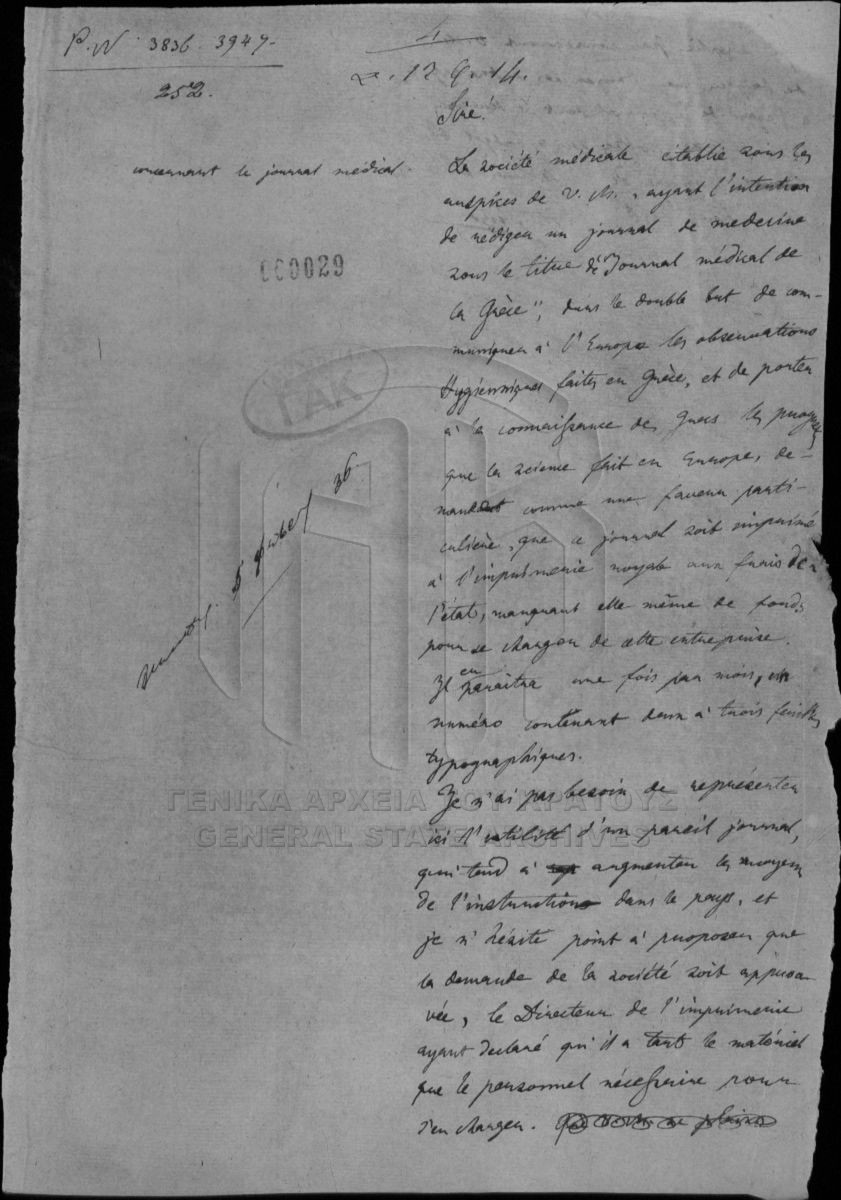 P. N 3836. 3947.
252.
4
12 14.
Sire!
concernant le journal médical.
La société médicale établie sous les
auspices de V. M., ayant l'intention
de rédiger un journal de medecine
sous le titre de "Journal médical de
la Grèce", dans le double but de com-
muniquer à l'Europe les observations
Hygienniques faites en Grèce, et de porter
à la connaissance des Grecs les progrès
que la science fait en Europe, de-
mandent comme une faveur parti-
culière, que ce journal soit imprimé
à l'imprimerie royale aux frais de
l'état, manquant elle même de fonds
pour se charger de cette entreprise.
Il en paraitra une fois par mois, un
numéro contenant deux à trois feuilles
typographiques.
Je n'ai pas besoin de représenter
ici l'utilité d'un pareil journal,
qui tend à augmenter les moyens
de l'instruction dans le pays, et
je n'hésite point à proposer que
la demande de la société soit approu
vée, le Directeur de l'imprimerie
ayant declaré qu'il a tant le matériel
que le personnel nécessaire pour
s'en charger.
000029
36
ΓΑΚ
ΓΕΝΙΚΑ ΑΡΧΕΙΑ ΤΟΥ ΚΡΑΤΟΥΣ
GENERAL STATE ARCHIVES